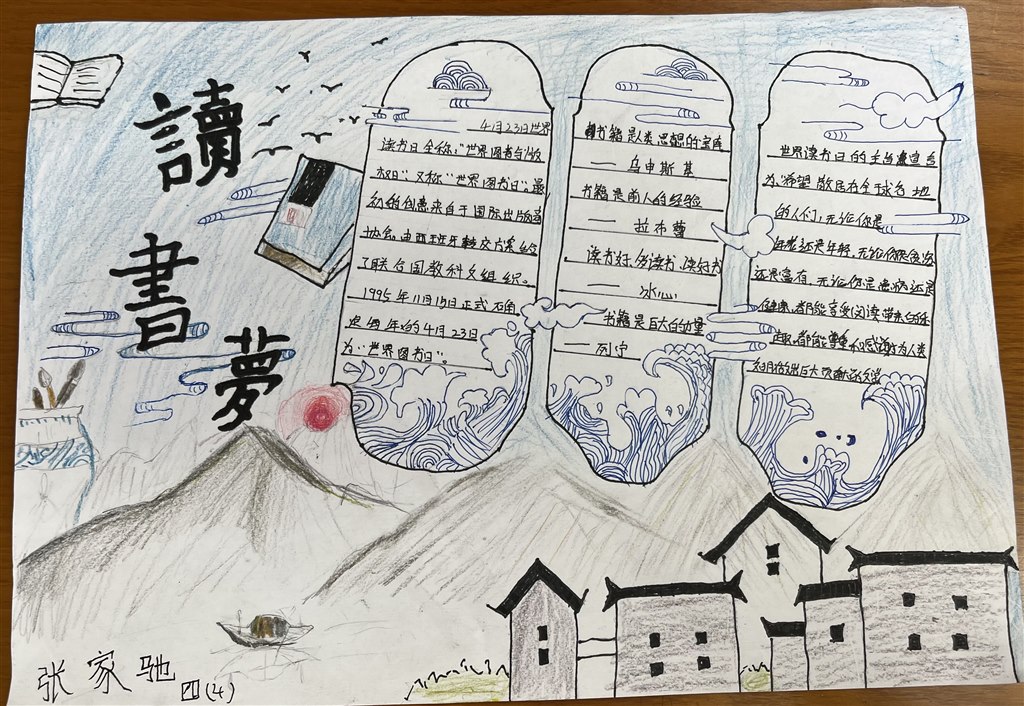 讀
書
夢
4月23日世界
读书日全称:"世界图书与版
权日",又称"世界图书日",最
初的创意来自于国际出版商
协会,由西班牙转交方案给
了联合国教科文组织。
1995年11月15日正式
定每年的4月23日
为"世界图书日"。
书籍是人类思想的宝库
——乌申斯基
书籍是前人的经验
——拉布蕾
读书好,多读书,读好书
——冰心
书籍是巨大的力量
——列宁
世界读书日的主旨宣言
为,"希望散居在全球各地
的人们,无论你是
年老还是年轻,无论你是贫穷
还是富有,无论你是患病还是
健康,都能享受阅读带来的乐
趣,都能尊重和感谢为人类
张家驰
四(4)